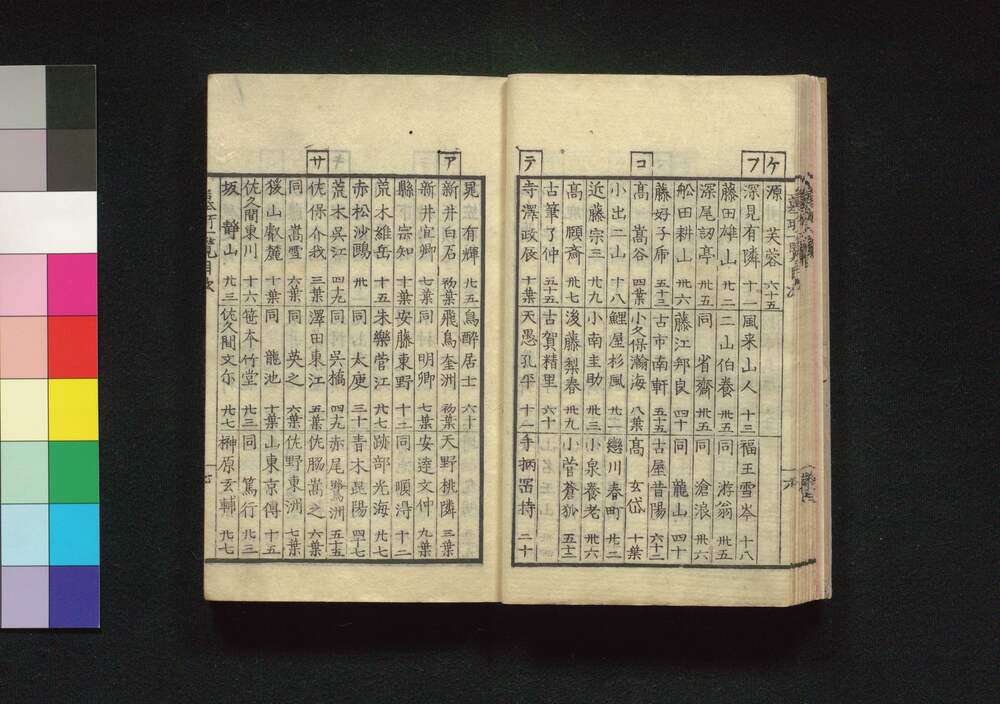 ケ
源 芙蓉 六十五
フ
深見有隣 十一 風来山人 十三 福王雪岑 十八
藤田雄山 廾二 二山伯養 卅五 同 游翁 卅五
深尾韶亭 卅五 同 省齋 卅五 同 滄浪 卅六
舩田耕山 卅六 藤江邦良 四十 同 龍山 四十
藤好子帋 五十三 古市南軒 五十五 古屋昔陽 六十二
コ
髙 嵩谷 四葉 小久保瀚海 八葉 髙 玄岱 十葉
小出二山 十八 鯉屋杉風 廾一 戀川春町 廾二
近藤宗三 廾九 小南圭助 卅三 小泉養老 卅六
髙 頤斎 卅七 後藤梨春 卅九 小菅蒼狐 五十二
古筆了仲 五十五 古賀精里 六十
テ
寺澤政辰 十葉 天愚孔平 十一 手柄岡持 二十
晁 有輝 廾五 鳥酔居士 六十
ア
新井白石 初葉 飛鳥奎洲 初葉 天野桃隣 三葉
新井宜卿 七葉 同 明卿 七葉 安達文仲 九葉
縣 宗知 十葉 安藤東野 十二 同 順淂 十二
荒木雄岳 十五 朱樂菅江 廾七 跡部光海 廾七
赤松沙鷗 卅一 同 太庾 三十 青木昆陽 四十七
荒木呉江 四十九 同 呉橋 四十九 赤尾鷺洲 五十五
サ
佐保介我 三葉 澤田東江 五葉 佐脇嵩之 六葉
同 嵩雪 六葉 同 英之 六葉 佐野東洲 七葉
後山叡麓 十葉 同 龍池 十葉 山東京傳 十五
佐久間東川 十六 笹本竹堂 廾三 同 篤行 廾三
坂 靜山 廾三 佐久間文尓 廾七 榊原玄輔 廾七